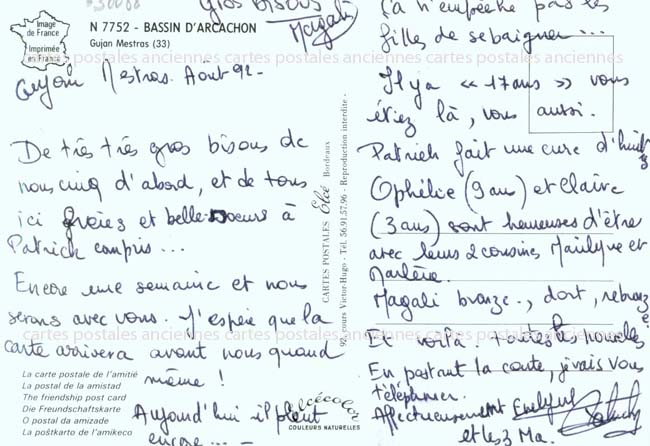 Image
de France
Imprimée
en France
N 7752 - BASSIN D'ARCACHON
Gujan Mestras (33)
Gros Bisous
Magali
Gujan Mestras. Août 92-
De très très gros bisous de
nous cinq d'abord, et de tous
ici frères et belle-soeurs à
Patrick compris...
Encore une semaine et nous
serons avec vous. J'espère que la
carte arrivera avant nous quand
même !
Aujourd'hui il pleut
encore...
La carte postale de l'amitié
La postal de la amistad
The friendship post card
Die Freundschaftskarte
O postal da amizade
La poŝtkarto de l'amikeco
CARTES POSTALES Elcé Bordeaux
92, cours Victor-Hugo - Tél. 56.91.57.96 - Reproduction interdite -
elcécolor
COULEURS NATURELLES
ça n'empêche pas les
filles de se baigner...
Il y a « 17 ans » vous
étiez là, vous aussi.
Patrick fait une cure d'huitres
Ophélie (9 ans) et Claire
(3 ans) sont heureuses d'être
avec leurs 2 cousines Mailyne et
Marlène.
Magali bronze., dort, rebronze
Et voilà toutes les nouvelles
En postant la carte, je vais vous
téléphoner.
Affectueusement Evelyne
et les 3 Ma.
cartes postales anciennes cartes postales anciennes cartes postales anciennes
cartes postales anciennes cartes postales anciennes cartes postales anciennes
cartes postales anciennes cartes postales anciennes cartes postales anciennes